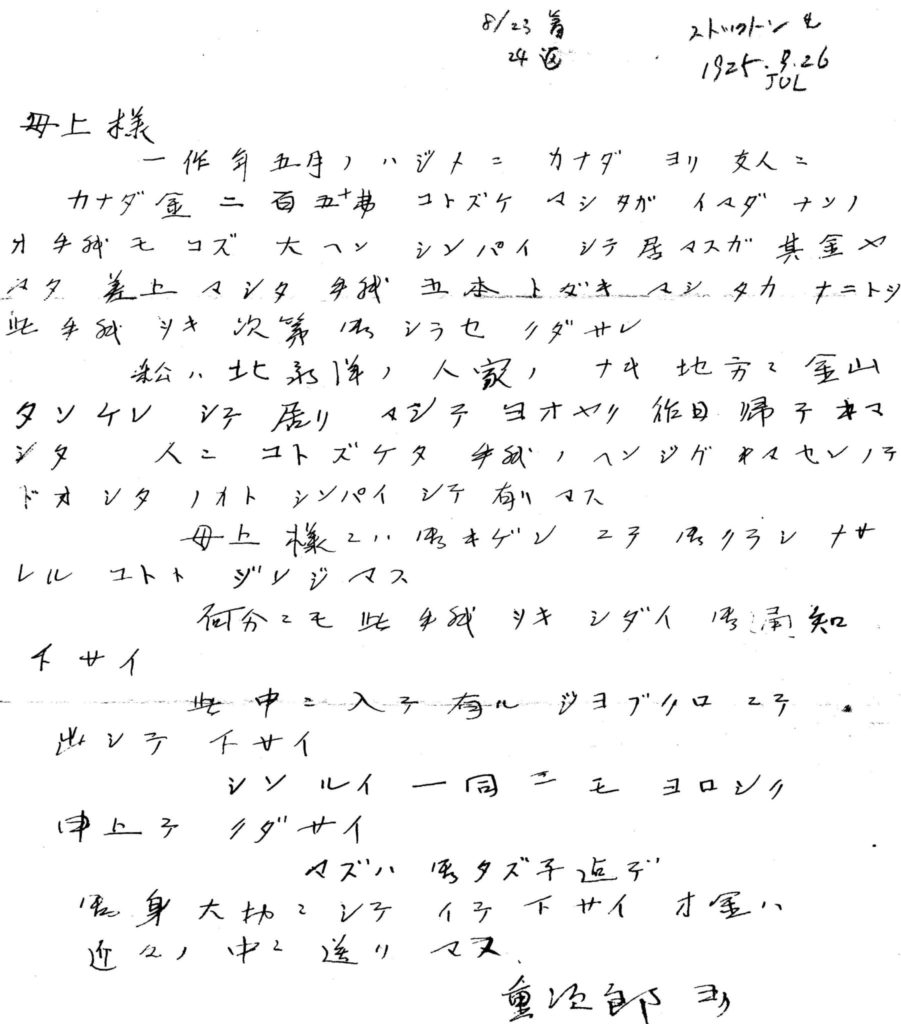 8/23 着
24 返
ストックトン
1925.8.26
JUL
母上様
一作年五月ノハジメニ カナダ ヨリ 友人ニ
カナダ金 二百五十弗 コトズケ マシタガ イマダ ナンノ
オ手紙モ コズ 大ヘン シンパイ シテ居マスガ 其金ヤ
マタ 差上マシタ 手紙 五本トドキ マシタカ ナニトゾ
此手紙 ツキ 次第 御シラセ クダサレ
私ハ 北氷洋ノ 人家ノ ナキ 地方ニ 金山
タンケン シテ 居リ マシテ ヨオヤク 作日 帰テ キマ
シタ 人ニ コトズケタ 手紙ノ ヘンジガ キマセンノデ
ドオシタ ノオト シンパイ シテ 有リマス
母上様ニハ 御キゲン ニテ 御クラシ ナサ
レル コトト ゾンジマス
何分ニモ 此手紙 ツキ シダイ 御通知
下サイ
此中ニ 入テ 有ル ジョブクロ ニテ
出シテ 下サイ
シンルイ 一同ニモ ヨロシク
申上テ クダサイ
マズハ 御タズ子迄デ
御身大切ニ シテ イテ 下サイ オ金ハ
近々ノ 中ニ 送リ マス
重次郎 ヨリ